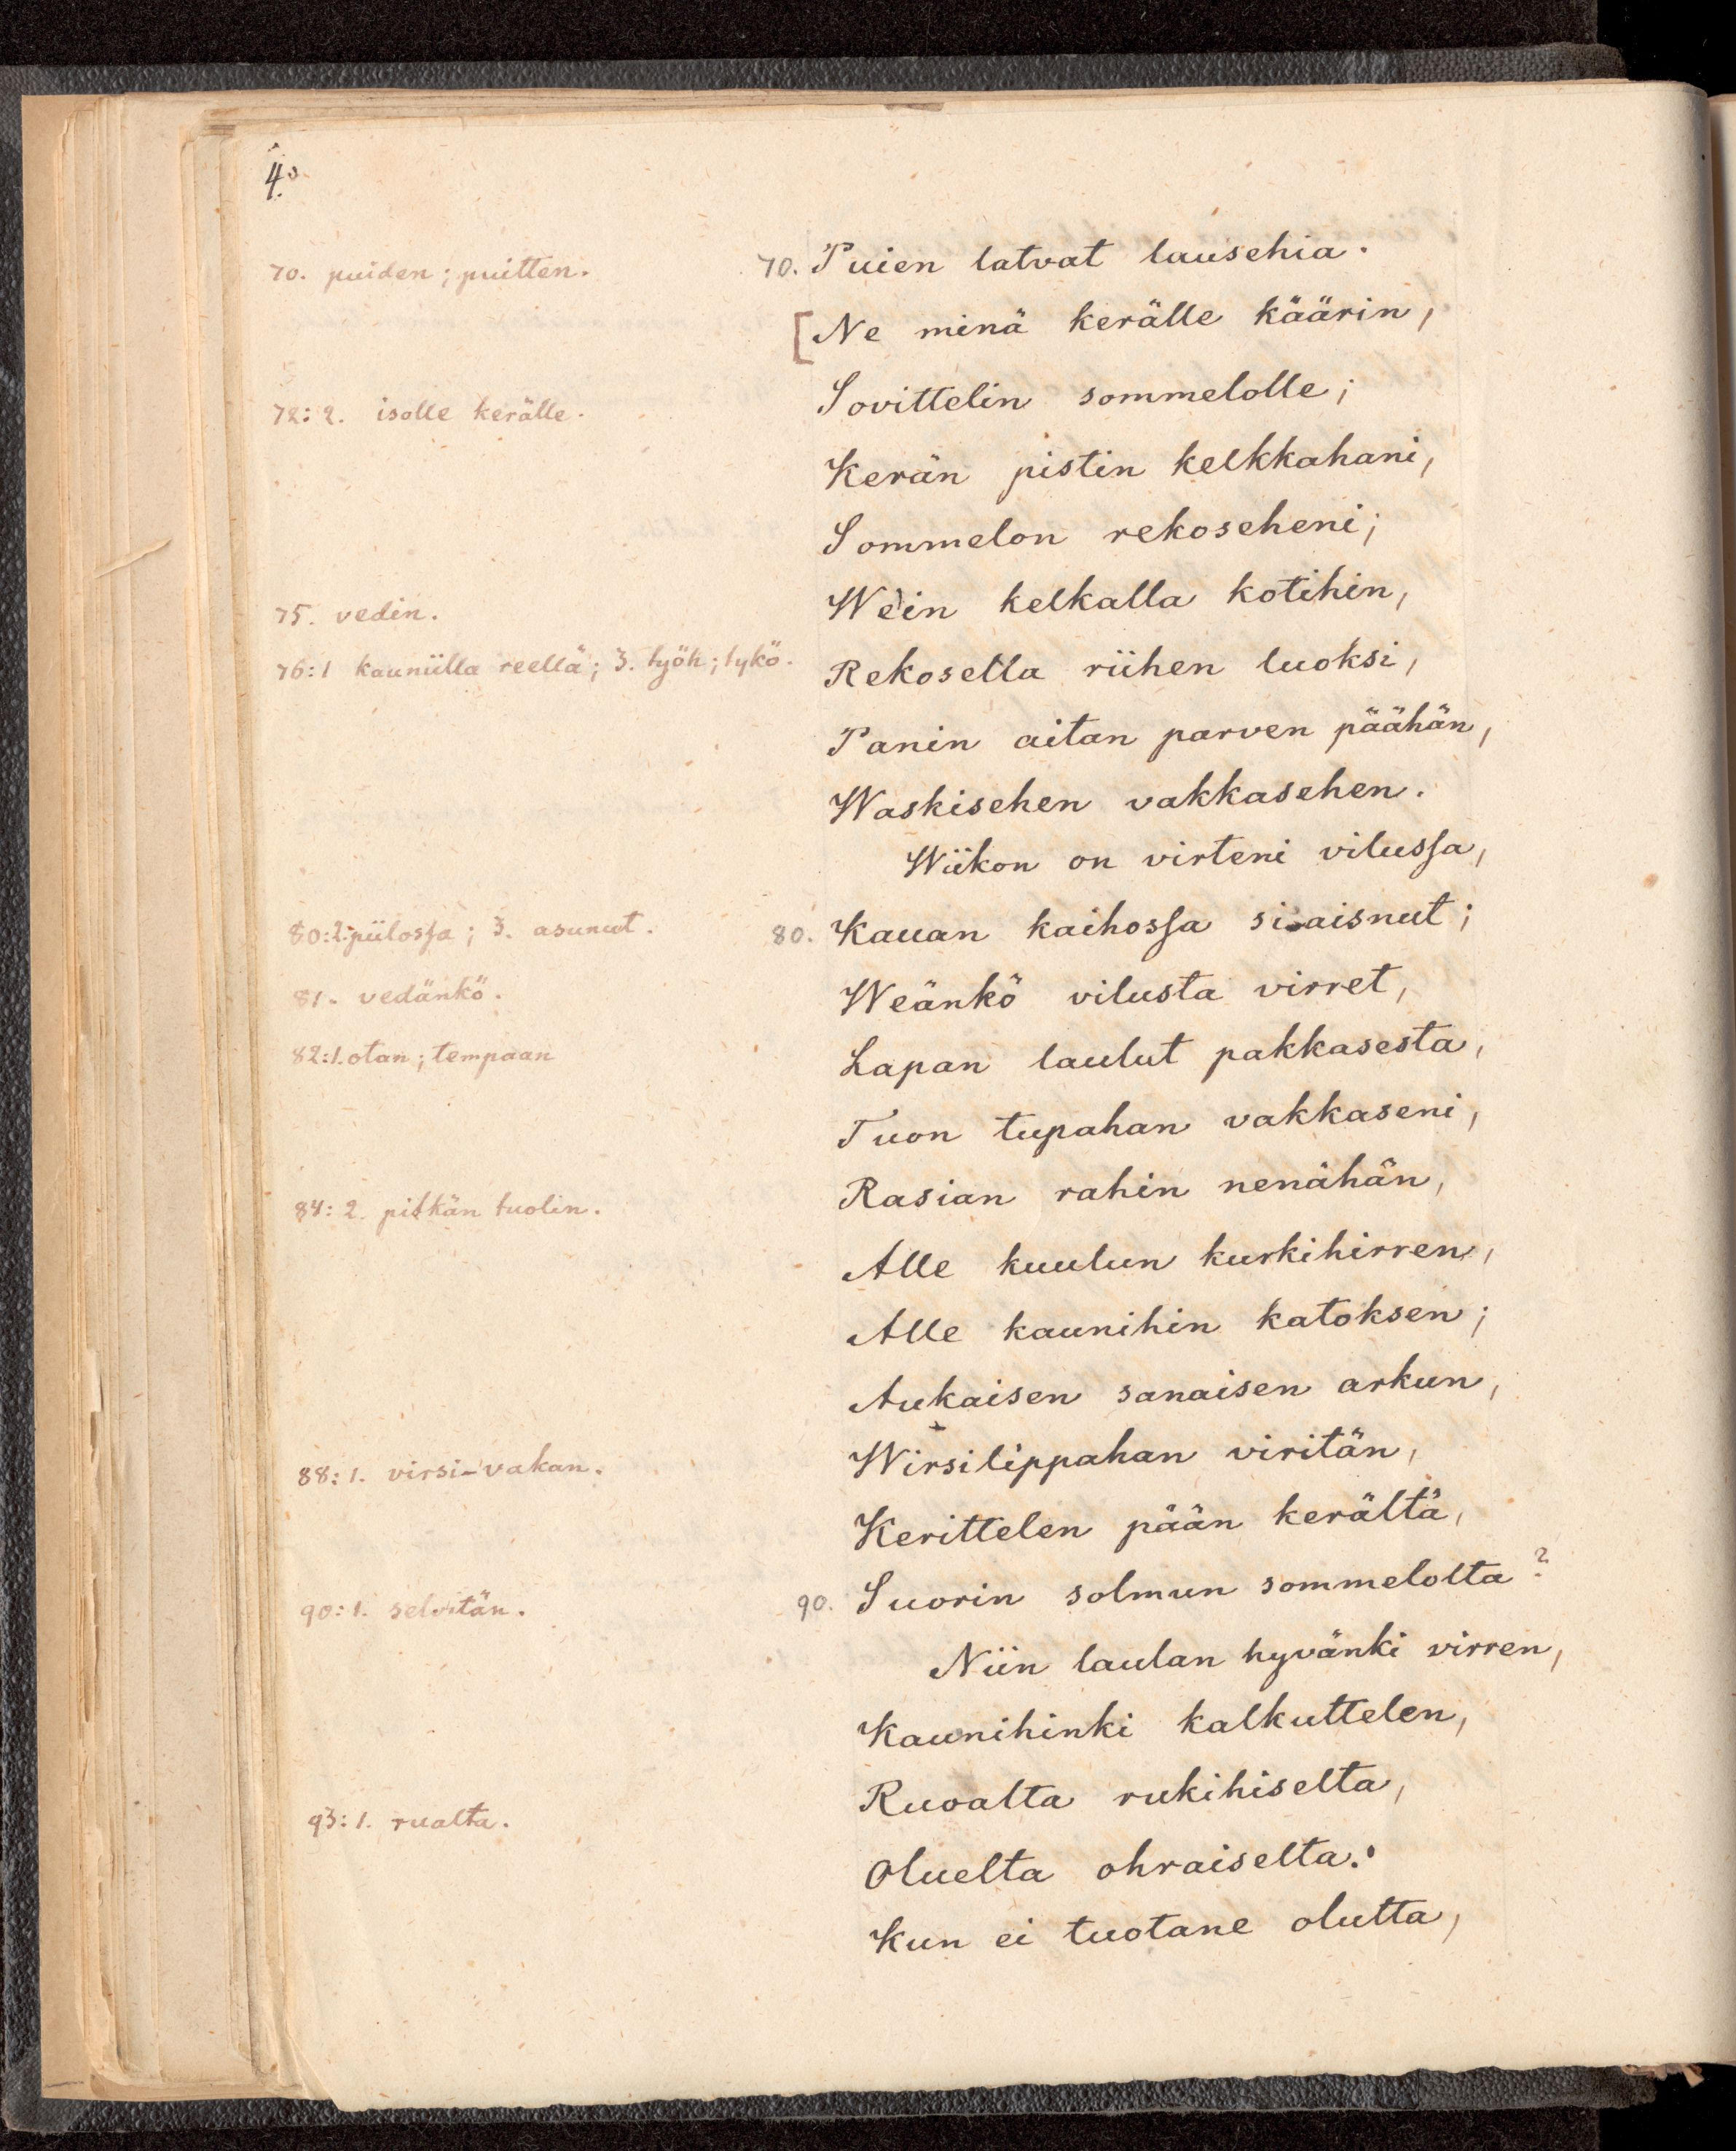 4.
70. puiden; puitten.
72:2. isolle kerälle.
75. vedin.
76:1 kauniilla reellä; 3. työh; tykö.
80:2. piilossa; 3. asunut.
81. vedänkö.
82:1. otan; tempaan
84:2. pitkän tuolin.
88:1. virsi-vakan.
90:1. selvitän.
93:1. rualta.
70. Puien latvat lausehia.
[Ne minä kerälle käärin,
Sovittelin sommelolle;
Kerän pistin kelkkahani,
Sommelon rekoseheni;
Wein kelkalla kotihin,
Rekosella riihen luoksi,
Panin aitan parven päähän,
Waskisehen vakkasehen.
Wiikon on virteni vilussa,
80. Kauan kaihossa siaisnut;
Weänkö vilusta virret,
Lapan laulut pakkasesta,
Tuon tupahan vakkaseni,
Rasian rahin nenähän,
Alle kuulun kurkihirren,
Alle kaunihin katoksen;
Aukaisen sanaisen arkun,
Wirsilippahan viritän,
Kerittelen pään kerältä,
90. Suorin solmun sommelolta?
Niin laulan hyvänki virren,
Kaunihinki kalkuttelen,
Ruoalta rukihiselta,
Oluelta ohraiselta:
Kun ei tuotane olutta,